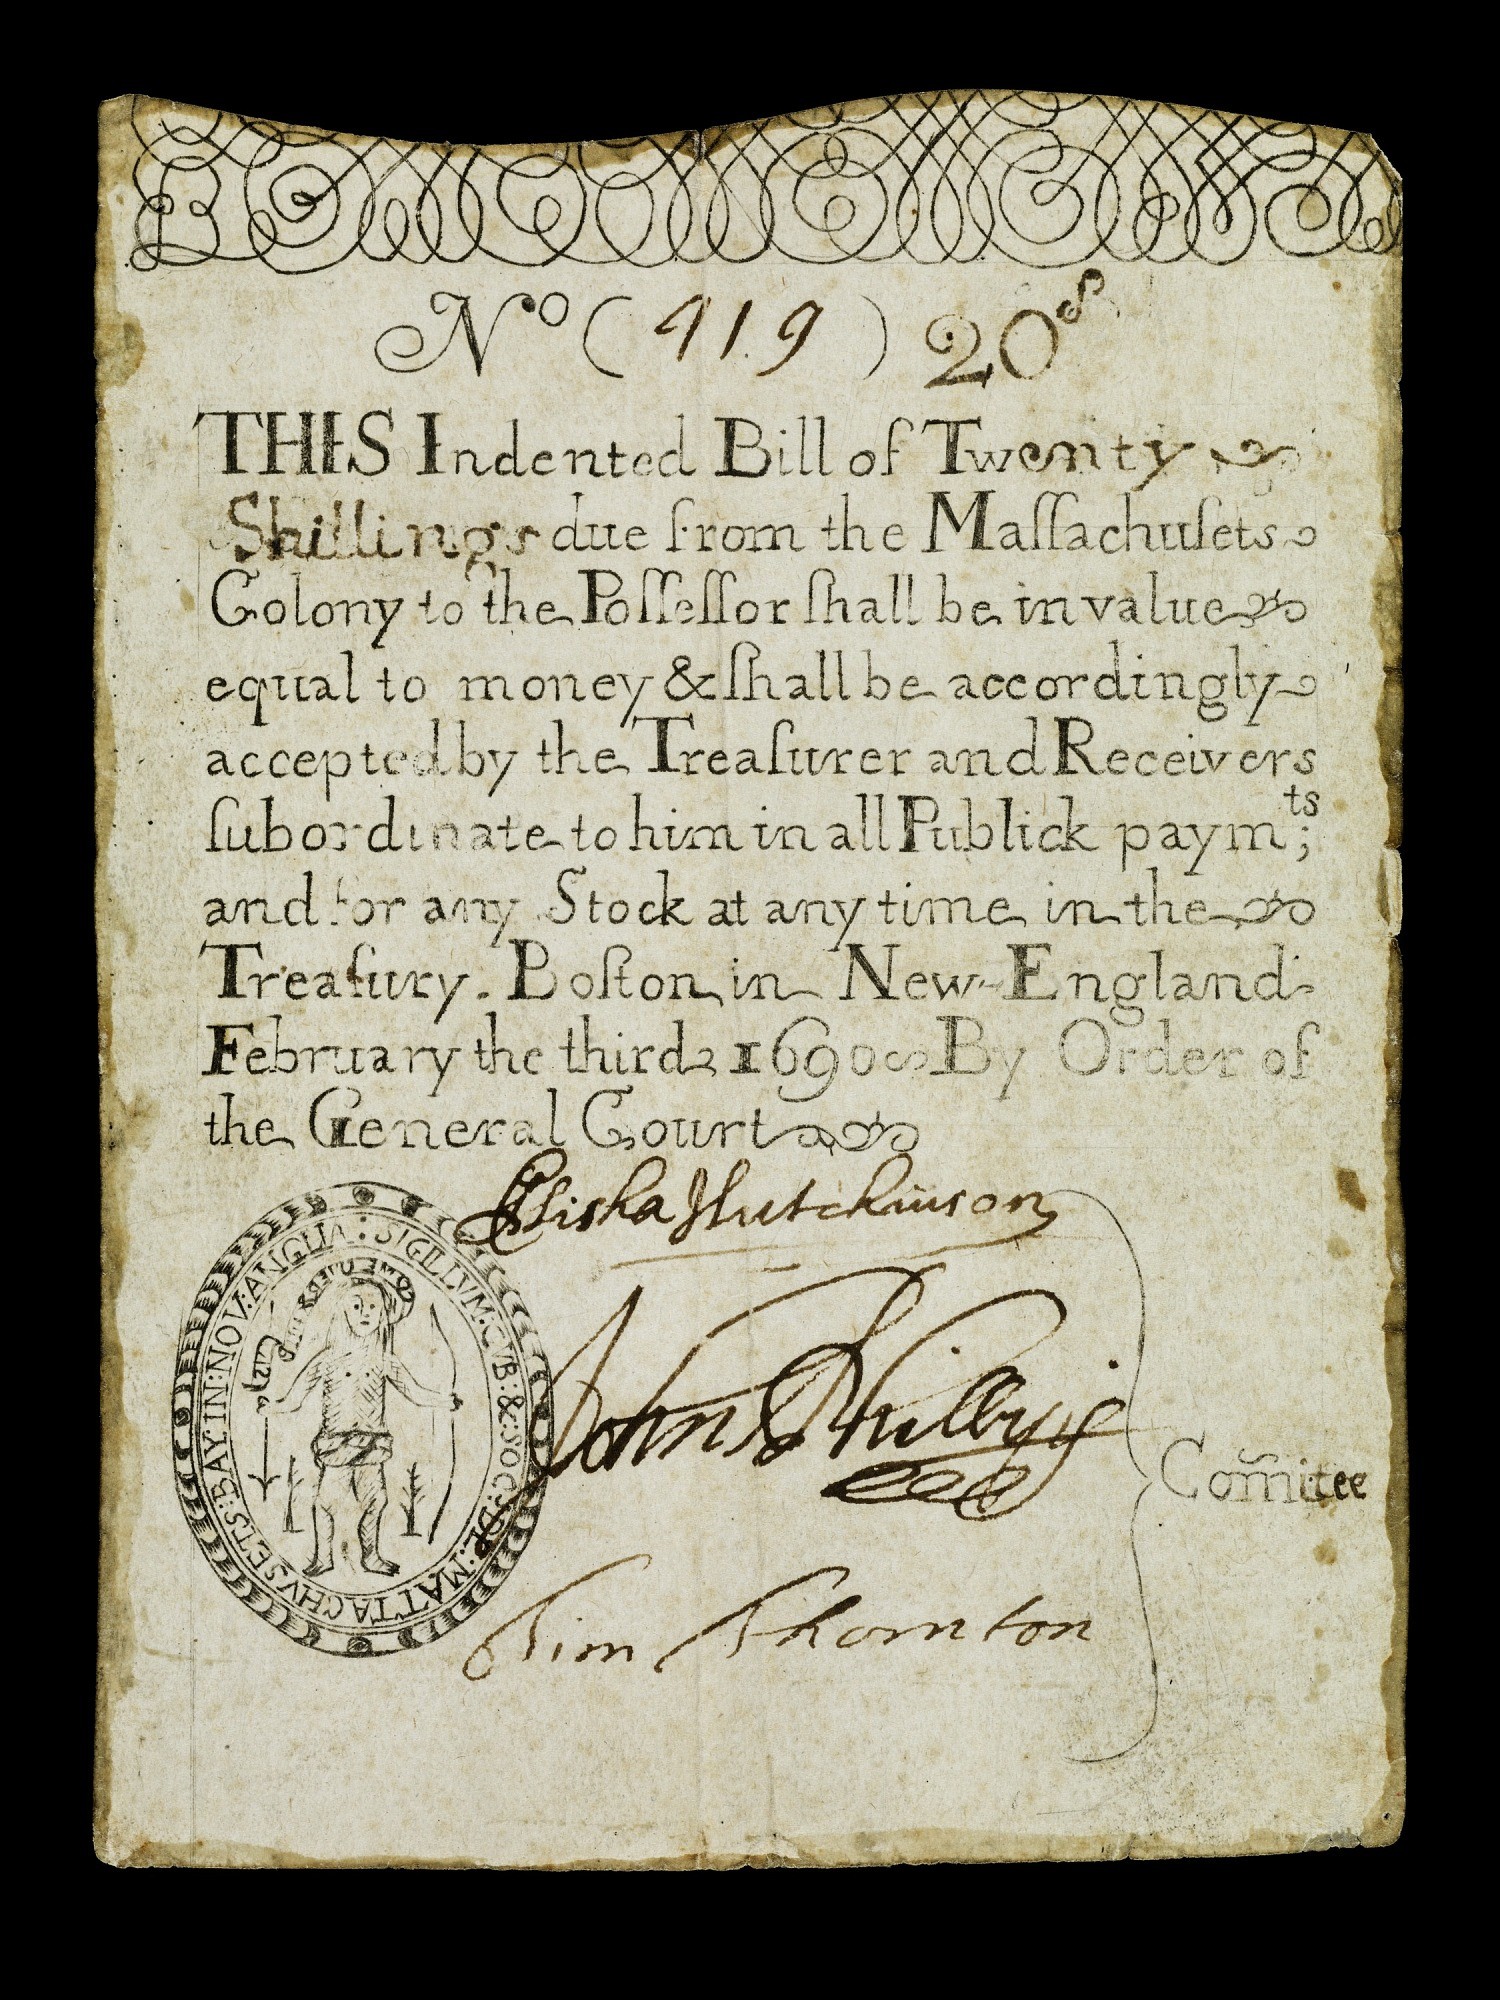 No (419) 20s
THIS Indented Bill of Twenty
Shillings due from the Maſſachuſets
Colony to the Poſſeſſor ſhall be in value
equal to money & ſhall be accordingly
accepted by the Treaſurer and Receivers
ſubordinate to him in all Publick paymts;
and for any Stock at any time in the
Treaſury. Boſton in New-England
February the third 1690 By Order of
the General Court
Elisha Hutchinson
John Phillips
Tim Thornton
Comitee
SIGILLVM:GVB:&:SOC:DE:MATTACHVSETS:BAY:IN:NOV:ANGLIA:
COME OVER &